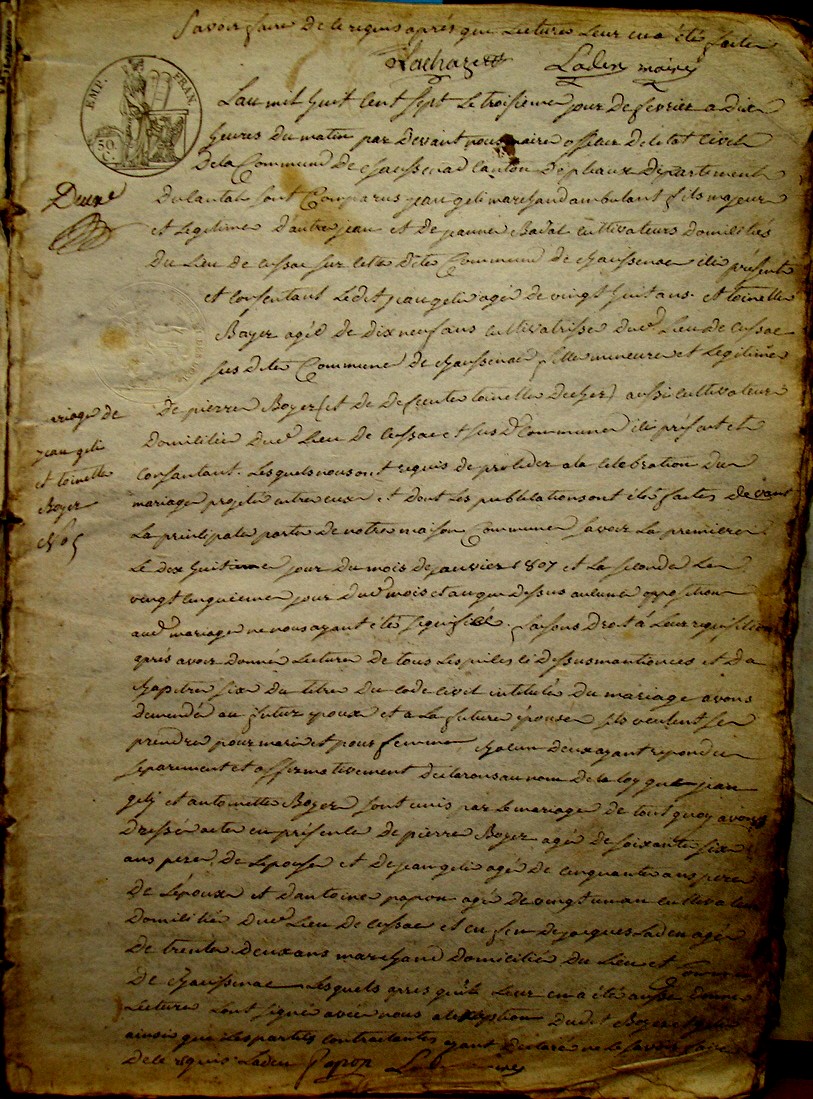 Savoir faire de le requis après que Lecture Leur en a été faite
Lachaze Laden maire
EMP. FRAN.
50 C.
Deux
L'an mil huit Cent sept Le troisième jour de fevrier a dix
heures du matin par devant nous maire officier de letat Civil
De la Commune de chaussenac Canton de pleaux Département
Du Cantal sont Comparus jean geli marchand ambulant fils majeur
et Legitime d'autre jean et de jeanne Badal cultivateurs domiliés
du Lieu de cussac sur cette dite Commune de chaussenac ici présents
et consentant Ledit jean geli agé de vingt huit ans. et toinette
Boyer agée de dix neuf ans cultivatrisse dud. Lieu de cussac
sus dite Commune de chaussenac fille mineure et Legitime
De pierre Boyer (et de defeunte toinette ) aussi cultivateur
domicilié dud. Lieu de cussac et sus de. Commune ici présent et
consantant. Lesquels nous ont requis de proceder a la Celebration du
mariage projeté entre eux et dont Les publications ont été faites devant
La principale porte de notre maison Commune savoir La premiere
Le dix huitieme jour du mois de janvier 1807 et La seconde Le
vingt cinquieme jour dud. mois et an que dessus aucune opposition
aud. mariage ne nous ayant été signifiée. faisons Droit à Leur requisition
après avoir donné Lecture de tous Les pieces ci dessus mantionées et du
chapitre six du titre du Code Civil intitulé du mariage avons
demendé au futur epoux et a La future épouse sils veulent se
prendre pour mari et pour femme chacun deux ayant repondu
separement et affirmativement declarons au nom de la Loy que jean
gelj et antoinette Boyer sont unis par le mariage de tout quoy avons
dressé acte en présence de pierre Boyer agé de soixante six
ans pere de Lepouse et de jean geli agé de cinquante ans pere
de Lépoux et d'antoine papon agé de vingt un an cultivateurs
domiciliés dud. Lieu de cussac et en fin de jacques Laden agé
de trente deux ans marchand domicilié du Lieu et Commune
de chaussenac Lesquels apres qu'il Leur en a été aussi donné
Lecture L'ont signé avec nous a L'exeption dudit Boyer et geli
ainsi que Les partis contractantes ayant declaré ne Le savoir faire
de le requis. Laden Papon Laden maire
mariage de
jean geli
et toinette
Boyer